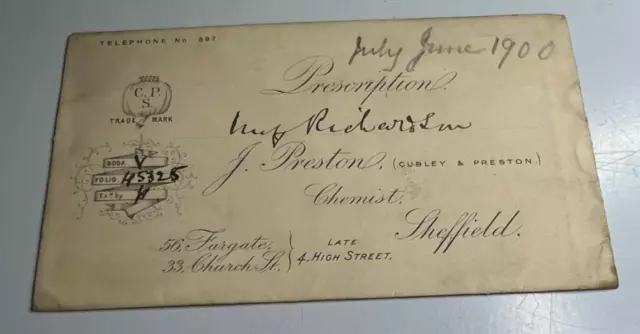 TELEPHONE No 897
July June 1900
Prescription.
C.P.
S.
TRADE MARK
Richardson
BOOK V
FOLIO 45325
Exd by H
J. Preston, (CUBLEY & PRESTON)
Chemist,
Sheffield.
56, Fargate,
33, Church St.
LATE
4, HIGH STREET.